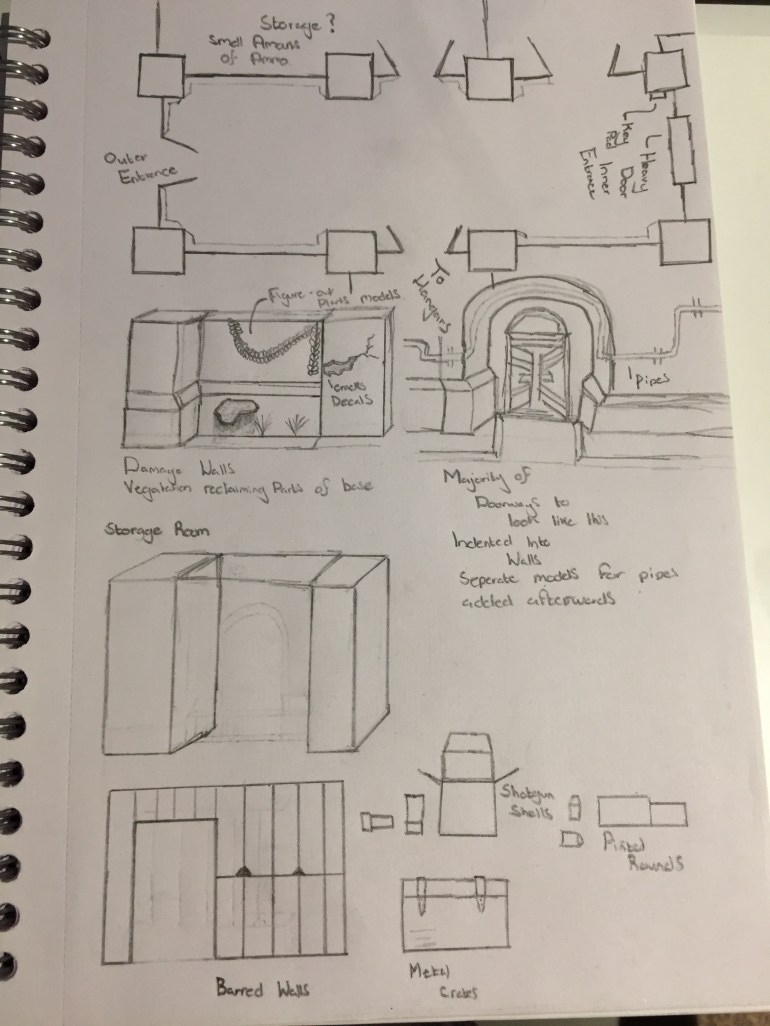 Storage?
Small Amouns
of Ammo
Outer
Entrance
Key
Pad
Heavy
Door
Inner
Entrance
To
Hangars
Figure-out
Plants models
Decals
pipes
Damage Walls
Vegatation reclaiming Parts of base
Majority of
Doorways to
look like this
Indented Into
Walls
Seperate models for pipes
added afterwards
Storage Room
Shotgun
Shells
Pistol
Rounds
Barred Walls
Metal
Crates